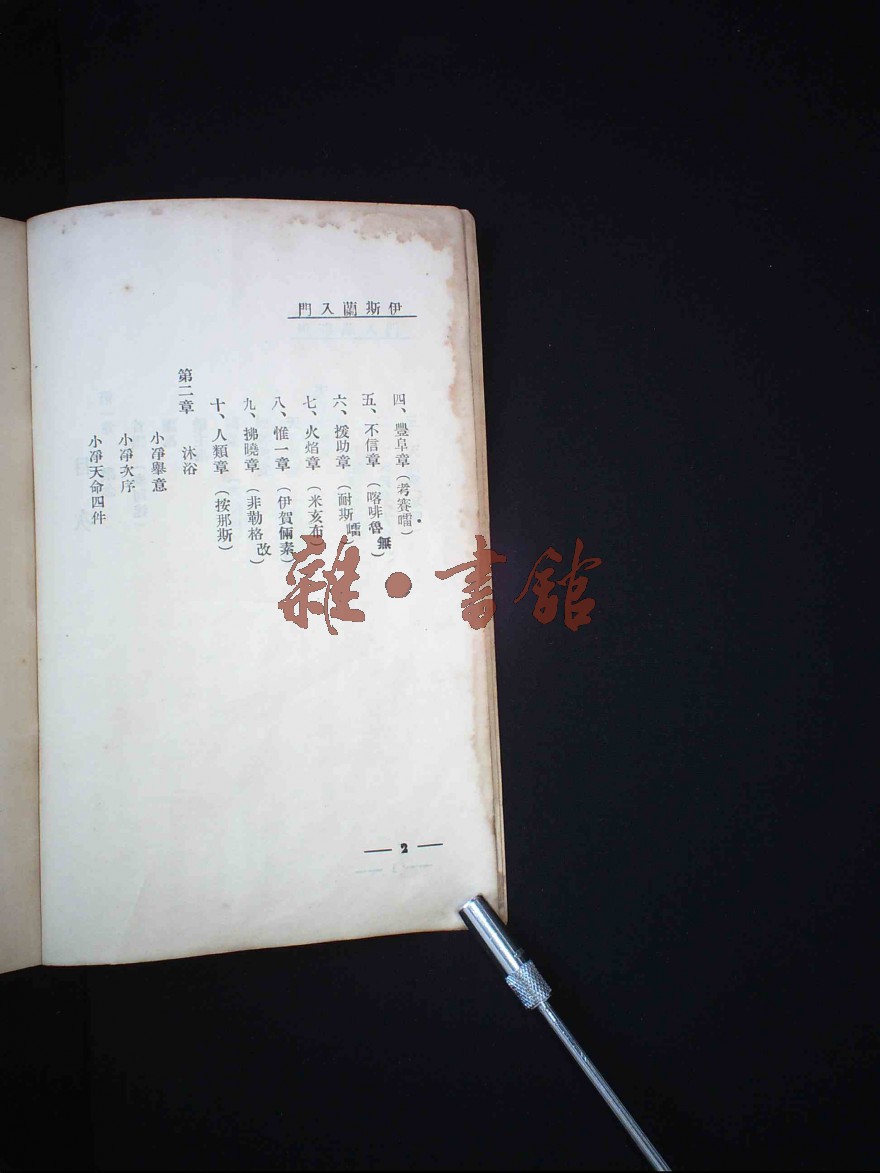 伊斯蘭入門
四、豐阜章(考賽)
五、不信章(喀啡魯無)
六、援助章(耐斯)
七、火焰章(米亥布)
八、惟一章(伊賀倆素)
九、拂曉章(非勒格改)
十、人類章(按那斯)
第二章　沐浴
小凈舉意
小凈次序
小凈天命四件
— 2 —
雜·書館